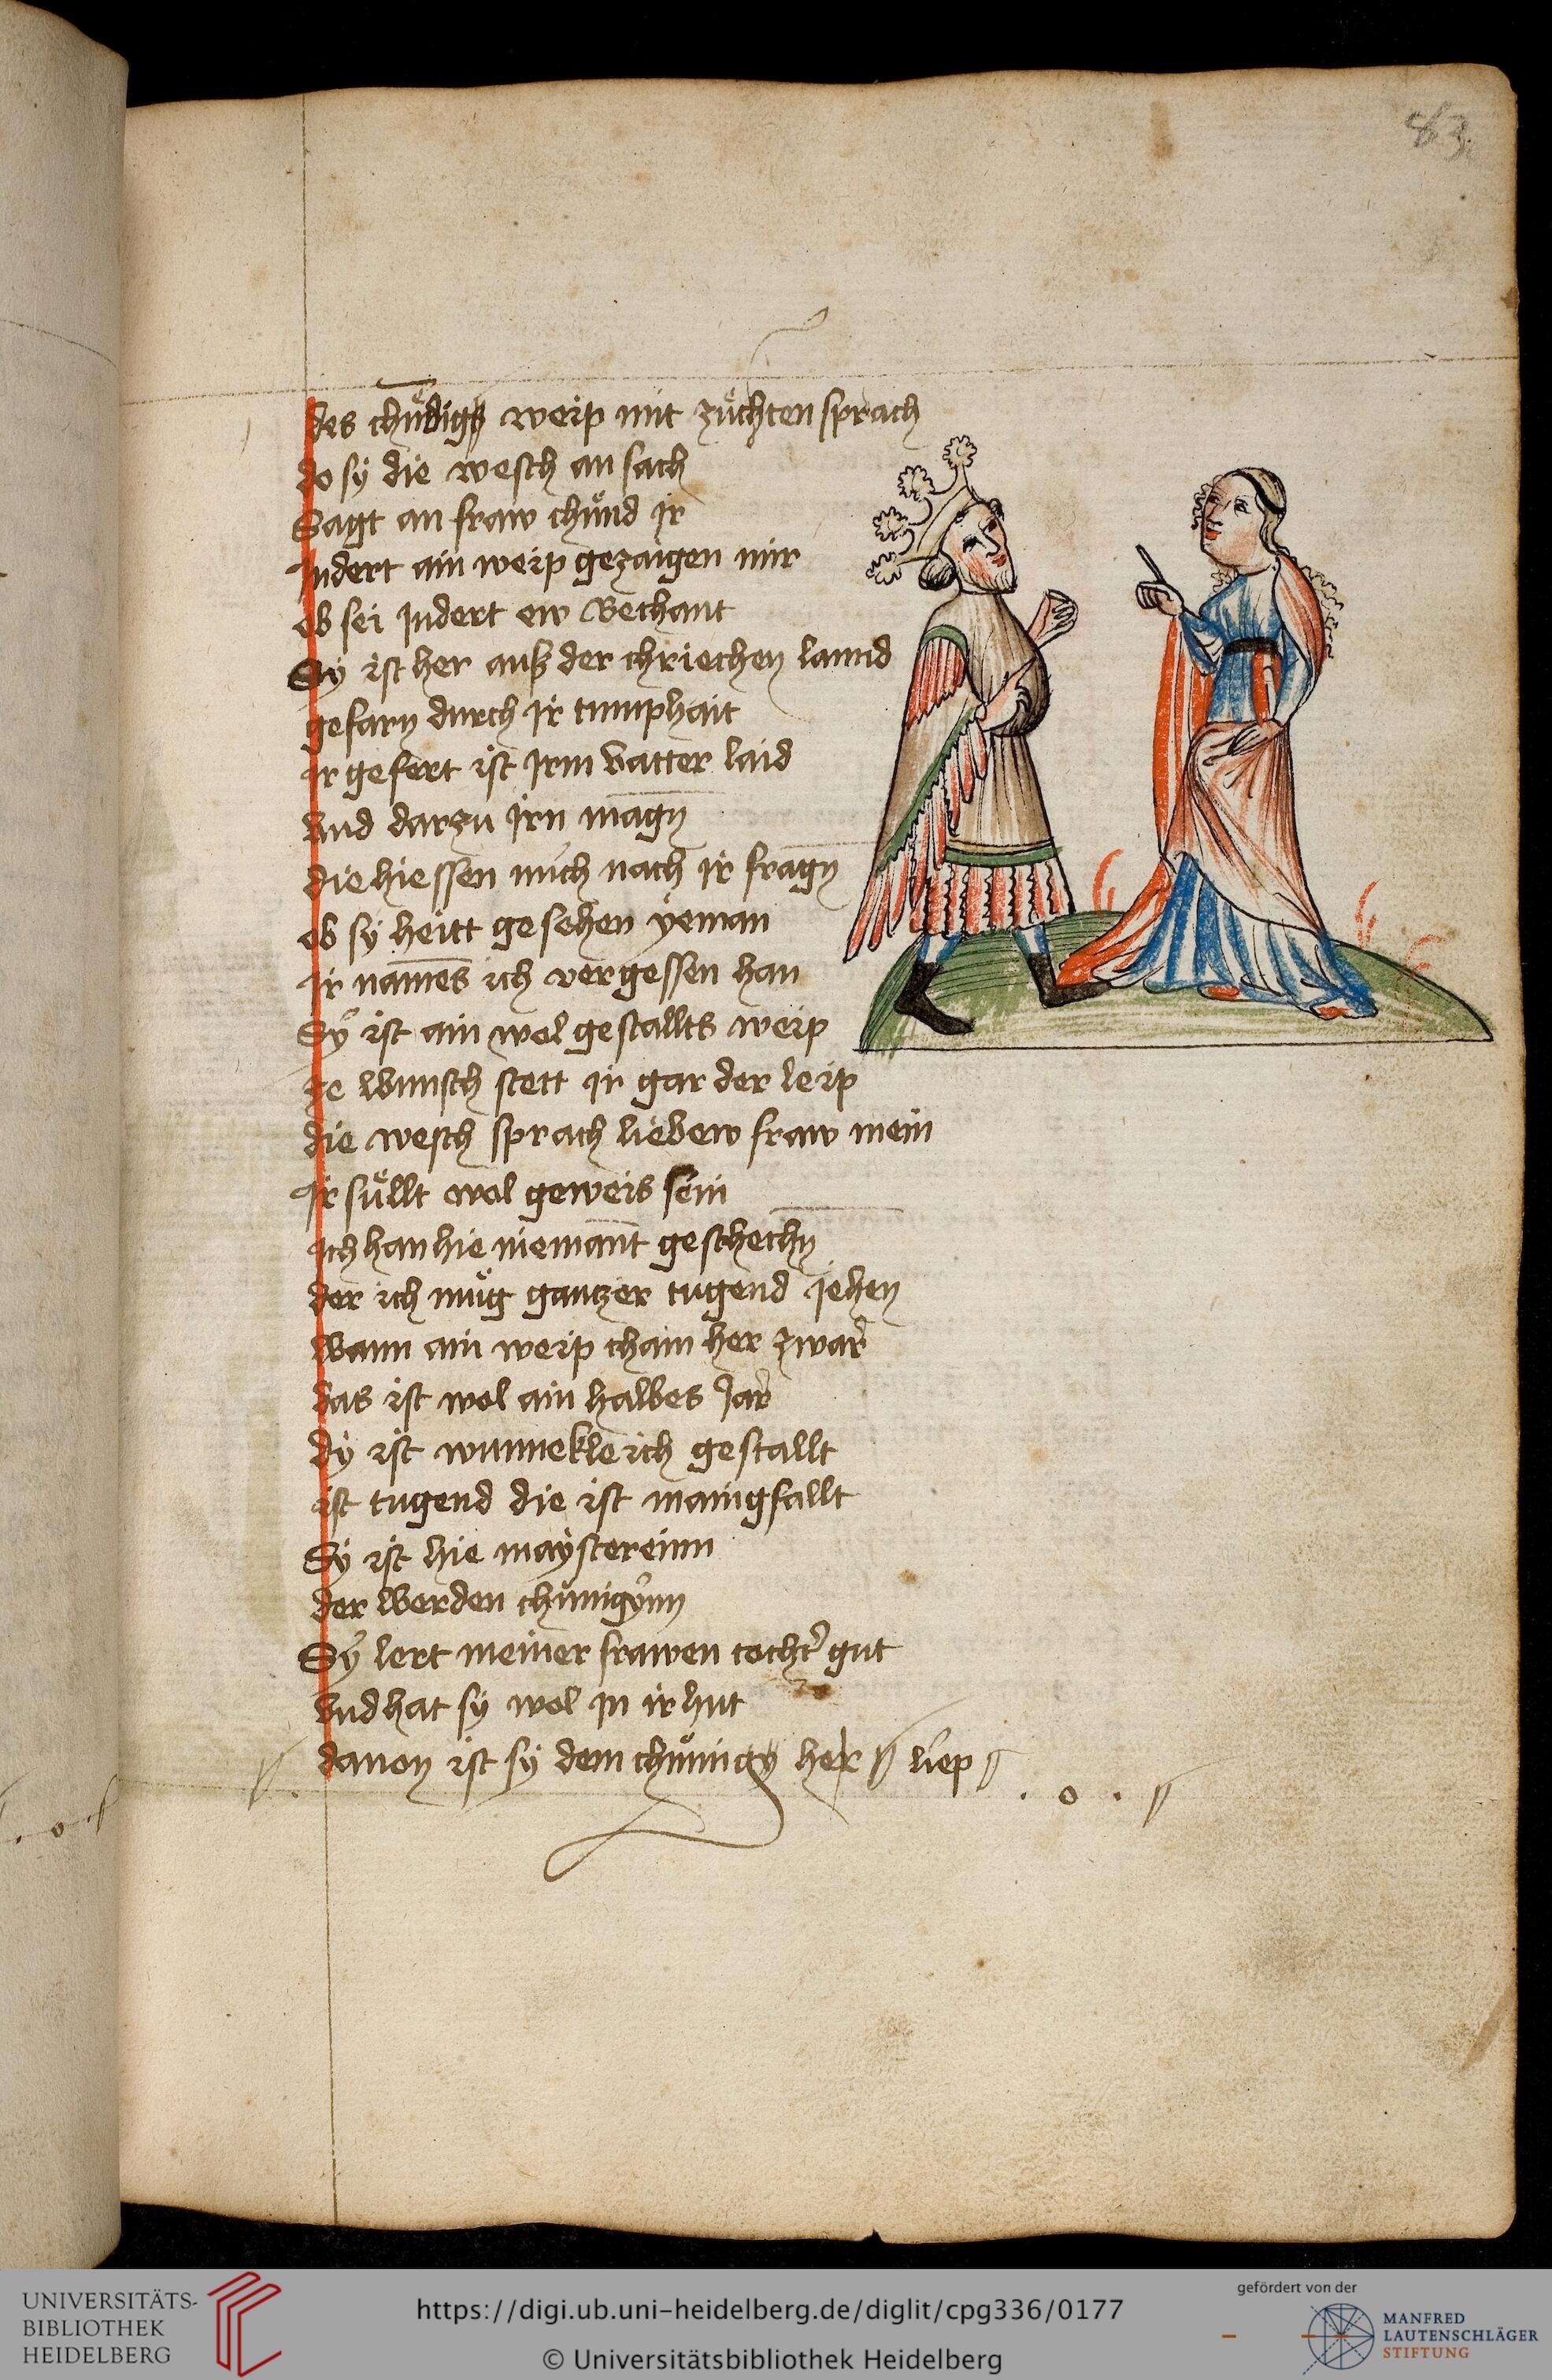 83.
des chüͤdigs weip mit züͤchten sprach
do sÿ die wesch an sach
Sagt an fraw chuͤnd ir
Jndert ain weip gezaigen mir
ob sei Jndert ew Bechant
Sy ist her auß der chriechen lannd
gefarn durch ir tumphait
ir gefert ist Jrm Vatter laid
Vnd darzu Jrn magn
die hiessen mich nach ir fragn
ob sÿ heitt gesehen ÿeman
ir names ich vergessen han
Sÿ ist ain wol gestallts weip
ze Wunsch stett ir gar der leip
die wesch sprach liebew fraw mein
Jr suͤllt wol geweis sein
ich han hie niemant gesehechn
der ich muͤg gantzer tugend jehen
Wann ain weip cham her zwar
das ist wol ain halbes Jar
dÿ ist wunnekleich gestallt
ist tugend die ist manigfallt
Sÿ ist hie maÿstereinn
der Werden chuͤnigÿnn
Sÿ lert meiner frawen tochter gut
Vnd hat sÿ wol in ir hut
dauon ist sÿ dem chuͤnigs her liep
. o .
UNIVERSITÄTS-
BIBLIOTHEK
HEIDELBERG
https://digi.ub.uni-heidelberg.de/diglit/cpg336/0177
© Universitätsbibliothek Heidelberg
gefördert von der
MANFRED
LAUTENSCHLÄGER
STIFTUNG